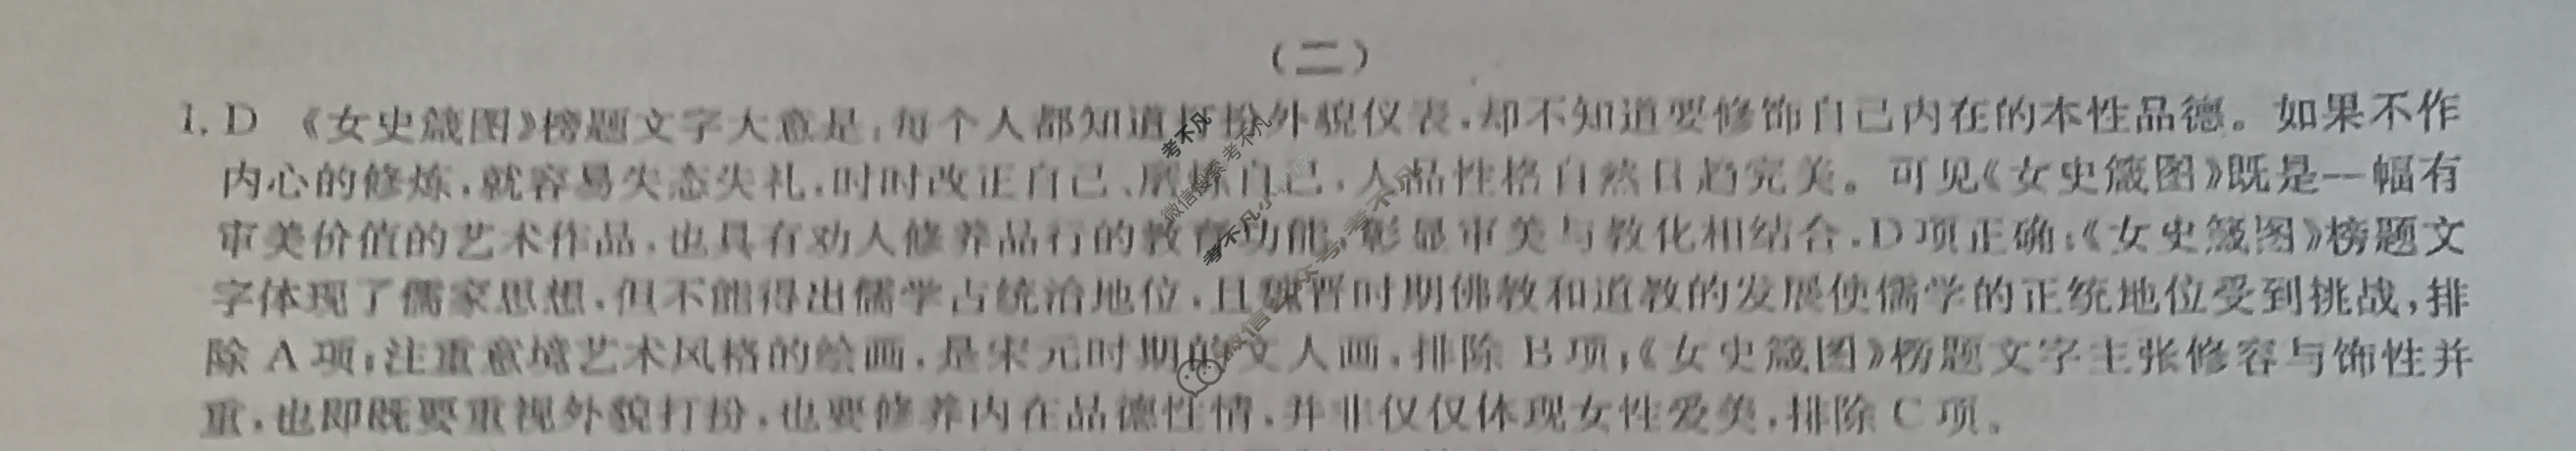 (二)
1. D 《女史箴图》榜题文字大意是,每个人都知道打扮外貌仪表,却不知道要修饰自己内在的本性品德。如果不作
内心的修炼,就容易失态失礼,时时改正自己、磨炼自己,人品性格自然日趋完美。可见《女史箴图》既是一幅有
审美价值的艺术作品,也具有劝人修养品行的教育功能,彰显审美与教化相结合,D项正确;《女史箴图》榜题文
字体现了儒家思想,但不能得出儒学占统治地位,且魏晋时期佛教和道教的发展使儒学的正统地位受到挑战,排
除A项;注重意境艺术风格的绘画,是宋元时期的文人画,排除B项;《女史箴图》榜题文字主张修容与饰性并
重,也即既要重视外貌打扮,也要修养内在品德性情,并非仅仅体现女性爱美,排除C项。
考不凡
微信搜索 考不凡
考不凡小
考不凡
微信